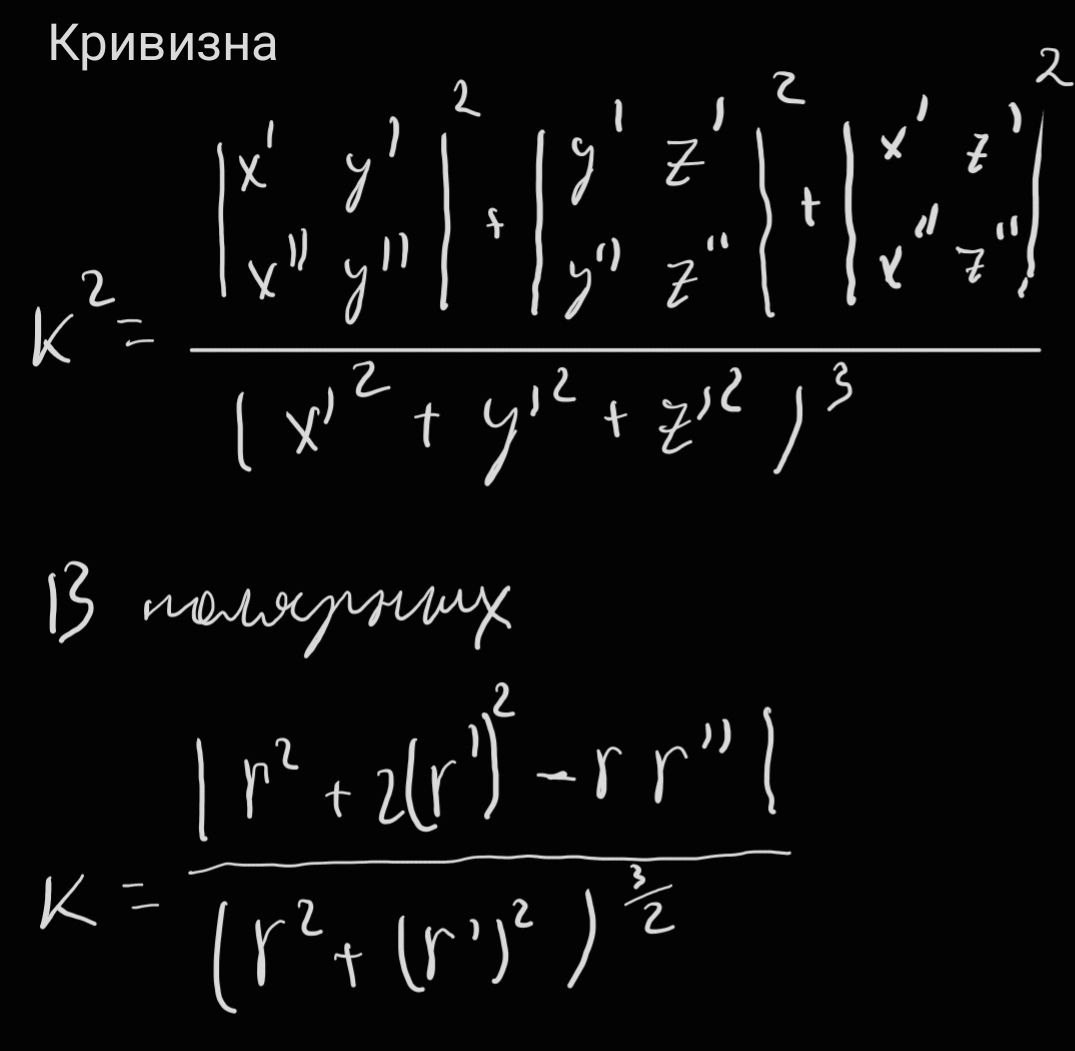 Кривизна
K² = (|x' y'; x'' y''|² + |y' z'; y'' z''|² + |x' z'; x'' z''|²) / (x'² + y'² + z'²)³
В полярных
K = |r² + 2(r')² - r r''| / (r² + (r')²)^(3/2)